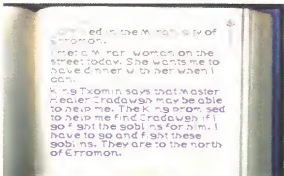 in the city of
Erromon.
I met a woman on the
street today. She wants me to
have dinner with her when I
can.
King Txomin says that Master
Healer Cradawgh may be able
to help me. The King promised
to help me find Cradawgh if I
go fight the goblins for him. I
have to go and fight these
goblins. They are to the north
of Erromon.